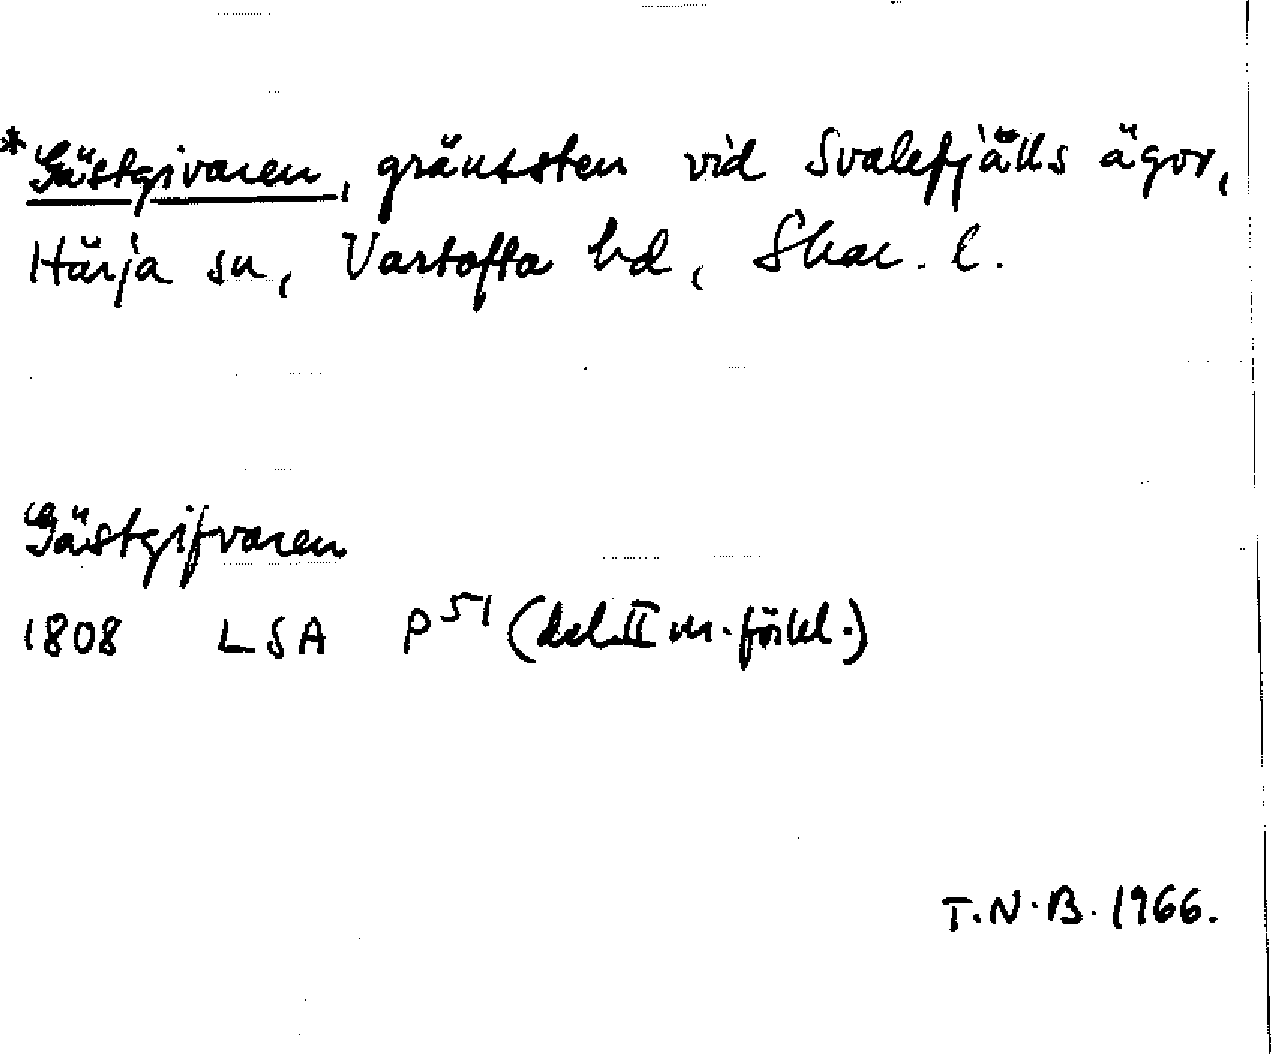 *Gästgivaren, gränssten vid Svalefjälls ägor,
Härja sn, Vartofta hd, Skar. l.
Gästgifvaren
1808 LSA P 51 (del II m. förkl.)
T.N.B. 1966.